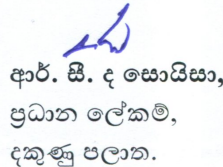 ආර්. සී. ද සොයිසා,
ප්‍රධාන ලේකම්,
දකුණු පලාත.